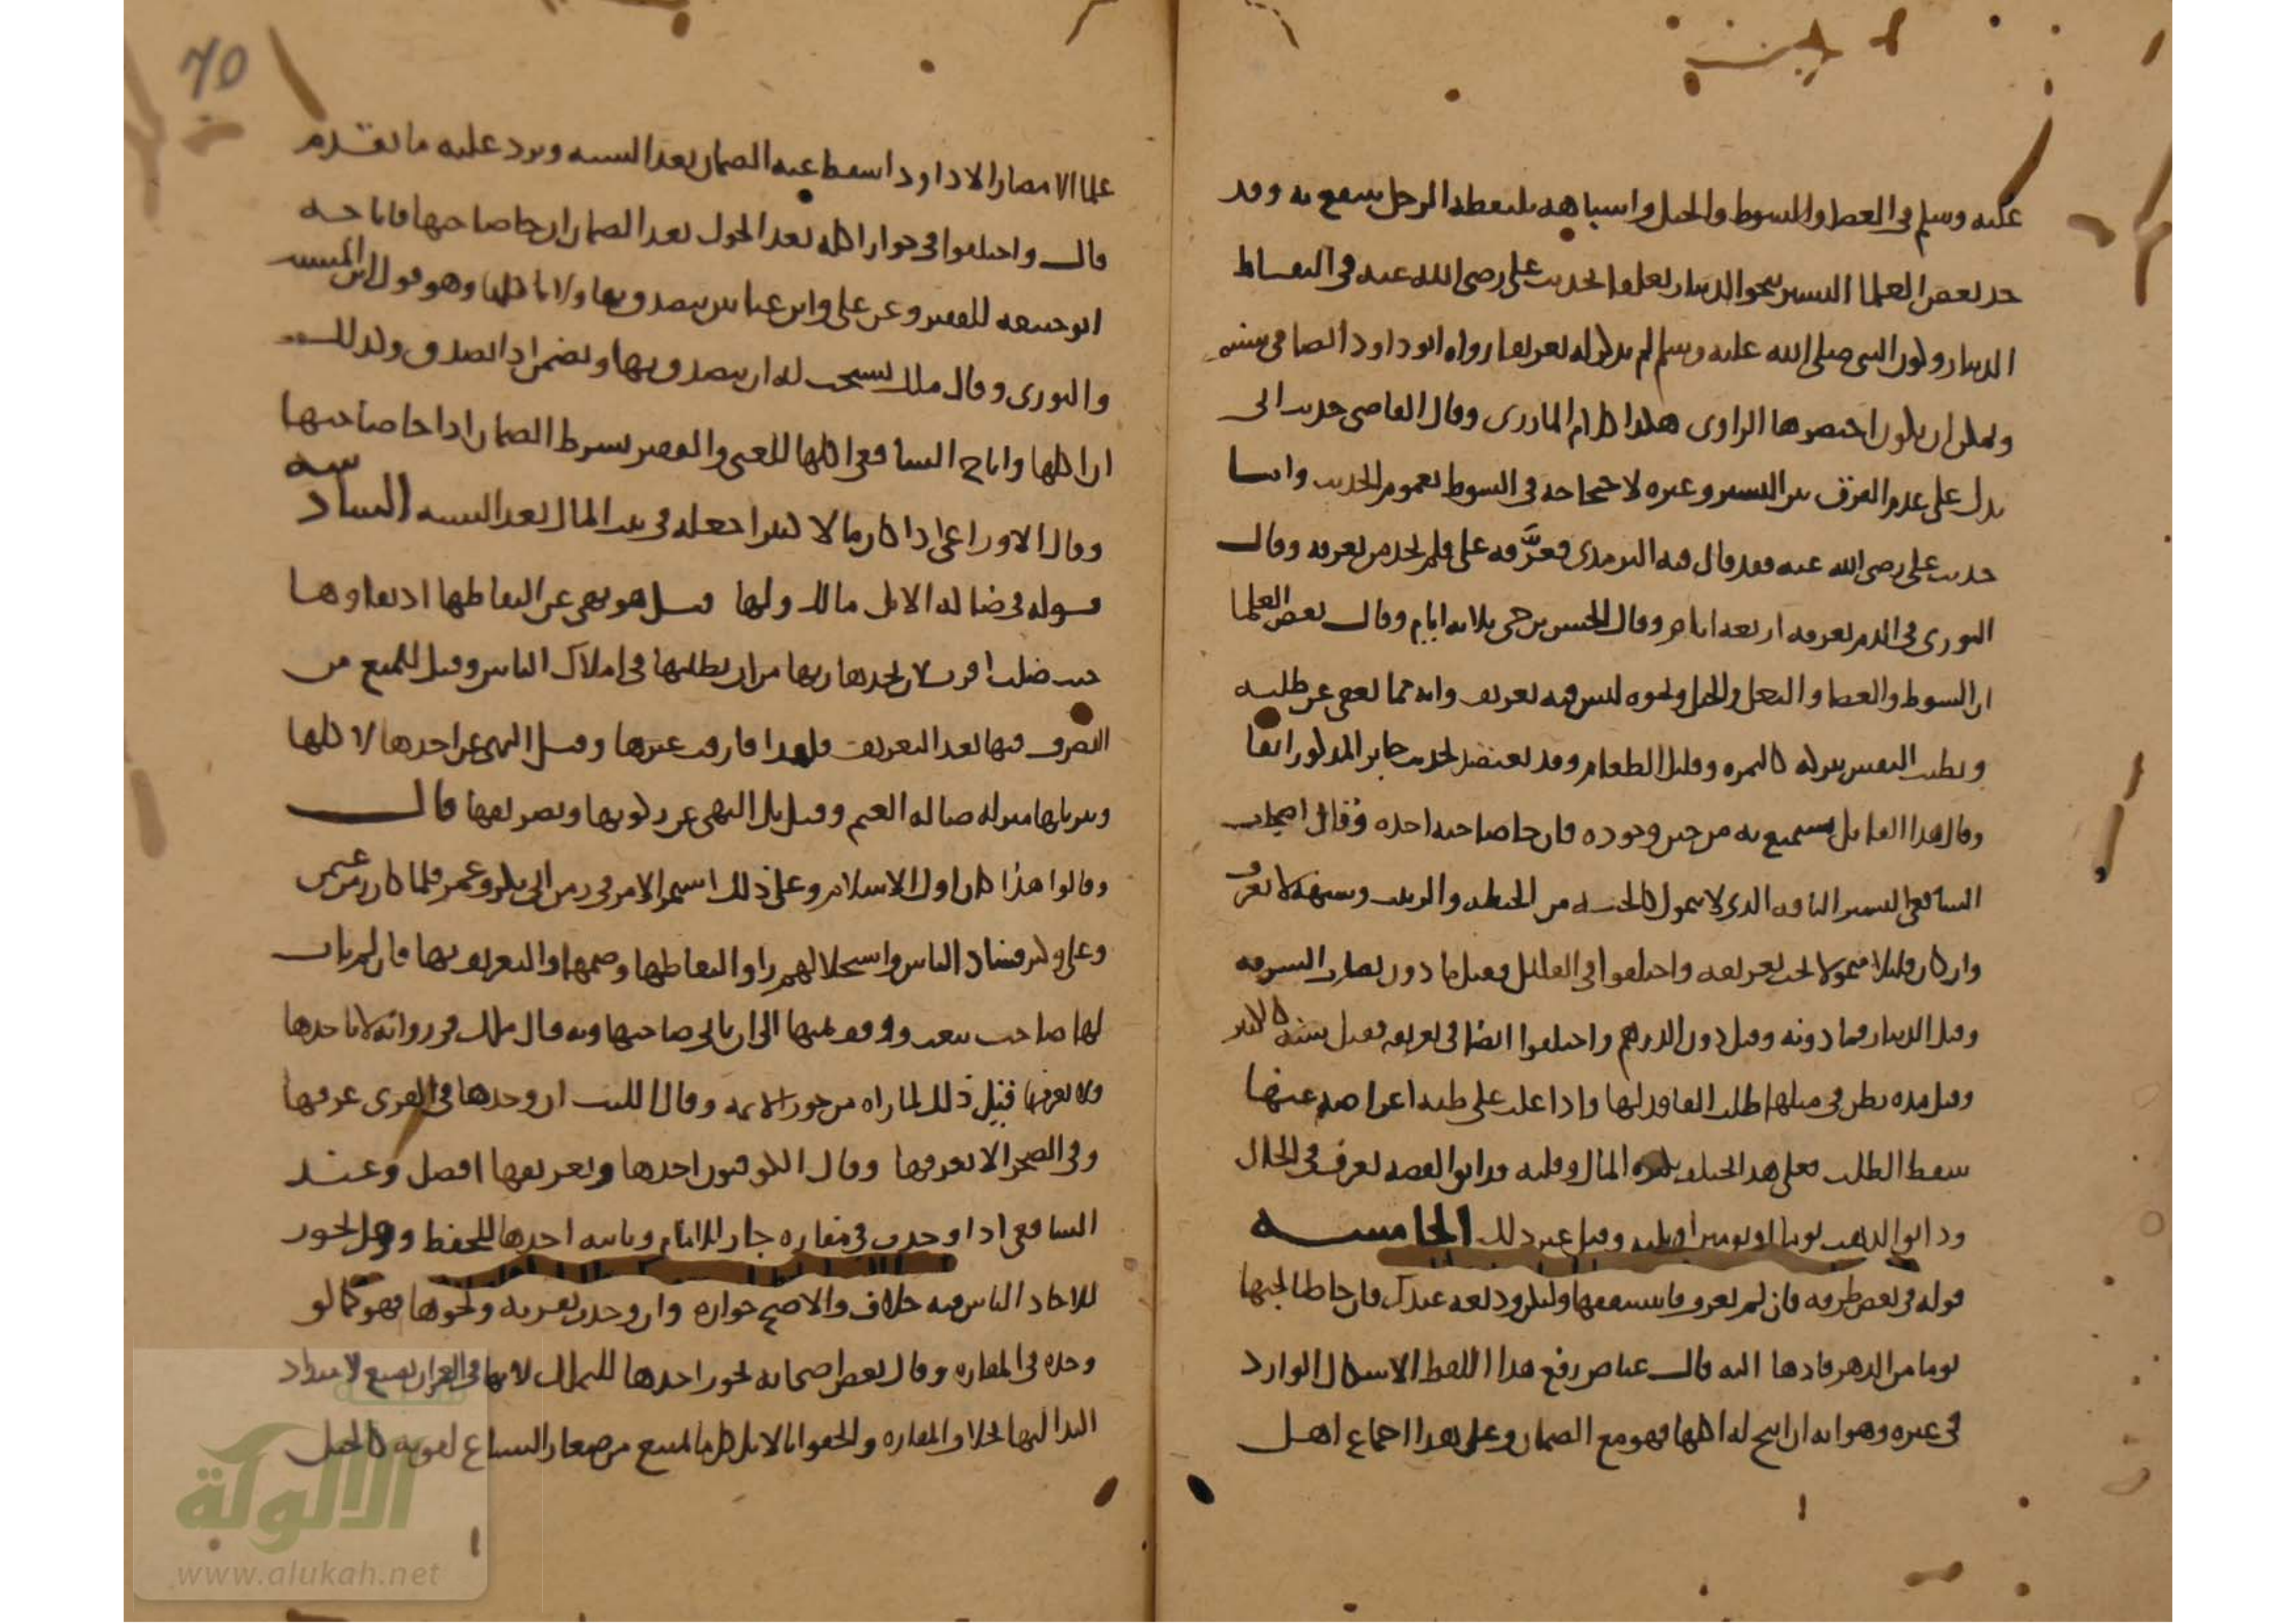 عليه وسلم في العصا والسوط والحبل واشباهه يلتقطه الرجل ينتفع به وقد
حد بعض العلما اليسير بنحو الدينار تعلقا بحديث علي رضي الله عنه في التقاط
الدينار وكون النبي صلى الله عليه وسلم لم يذكر له تعريفا رواه ابو داود ايضا في سننه
ويمكن ان يكون اختصرها الراوي هكذا كلام المازري وقال القاضي حديث ابي
يدل على عدم الفرق بين اليسير وغيره لاحتجاجه في السوط بعموم الحديث واما
حديث علي رضي الله عنه فقد قال فيه الترمذي فعرَّفه علي فلم يجد من يعرفه وقال
الثوري في الدرهم يعرفه اربعة ايام وقال الحسن بن حي ثلاثة ايام وقال بعض العلما
ان السوط والعصا والنعل والحبل ونحوه ليس فيه تعريف وانه مما يعفى عن طلبه
وتطيب النفس بتركه كالتمرة وقليل الطعام وقد يعتضد بحديث جابر المذكور انفا
وقال هذا القايل يستمتع به من حين وجوده فان جا صاحبه اخذه وقال اصحاب
الشافعي اليسير التافه الذي لا يتمول كالحبة من الحنطة والزبيب وشبهه لا يعرف
وان كان قليلا متمولا يجب تعريفه واختلفوا في القليل فقيل ما دون نصاب السرقة
وقيل الدينار فما دونه وقيل دون الدرهم واختلفوا ايضا في تعريفه فقيل سنة كالكثير
وقيل مدة يظن في مثلها طلب الفاقد لها واذا غلب على ظنه اعراضه عنها
سقط الطلب فعلى هذا يختلف بكثرة المال وقلته فدانق الفضة يعرف في الحال
ودانق الذهب يوما او يومين او ثلثه وقيل غير ذلك الخامسه
قوله في بعض طرقه فان لم تعرف فاستنفقها ولتكن وديعة عندك فان جا طالبها
يوما من الدهر فادها اليه قال عياض رفع هذا اللفظ الاشكال الوارد
في غيره وهو انه ان ابيح له اكلها فهو مع الضمان وعلى هذا اجماع اهل
٧٥
علما الامصار الا داود اسقط عنه الضمان بعد السنه ويرد عليه ما تقدم
قال واختلفوا في جواز اكله بعد الحول بعد الضمان ان جا صاحبها فاباحه
ابو حنيفه للفقير وعن علي وابن عباس يتصدق بها ولا ياكلها وهو قول ابن المسيب
والثوري وقال ملك يستحب له ان يتصدق بها ويضمن اذا تصدق وكذلك
ان اكلها واباح الشافعي اكلها للغني والفقير بشرط الضمان اذا جا صاحبها
وقال الاوزاعي اذا كان مالا كثيرا جعله في بيت المال بعد السنه السادسه
قوله في ضالة الابل مالك ولها قيل هو نهي عن التقاطها اذ بقاوها
حيث ضلت اقرب لان يجدها ربها من ان يطلبها في املاك الناس وقيل للمنع من
التصرف فيها بعد التعريف فلهذا فارقت غيرها وقيل النهي عن اخذها لاكلها
وتنزيلها منزلة ضالة الغنم وقيل بل النهي عن ركوبها وتصريفها قال
وقالوا هذا كان اول الاسلام وعلى ذلك استمر الامر في زمن ابي بكر وعمر فلما كان زمن عثمن
وعلي وكثر فساد الناس واستحلالهم راوا التقاطها وضمها والتعريف بها فان لم يات
لها صاحب بيعت ووقف ثمنها الى ان ياتي صاحبها وبه قال ملك في رواية لا ياخذها
ولا يعرفها قيل ذلك لما راه من جور الائمه وقال الليث ان وجدها في القرى عرفها
وفي الصحرا لا يعرفها وقال الكوفيون اخذها وتعريفها افضل وعند
الشافعي اذا وجدت في مفازه جاز للامام ونائبه اخذها للحفظ وهل يجوز
لاحاد الناس فيه خلاف والاصح جوازه وان وجدت بقريه ونحوها فهو كما لو
وجده في المفازه وقال بعض اصحابه يجوز اخذها للتملك لانها في العمران تضيع لامتداد
اليد اليها بخلاف المفازه والحقوا بالابل كل ما يمتنع من صغار السباع لقوته كالخيل
الالوكة
www.alukah.net